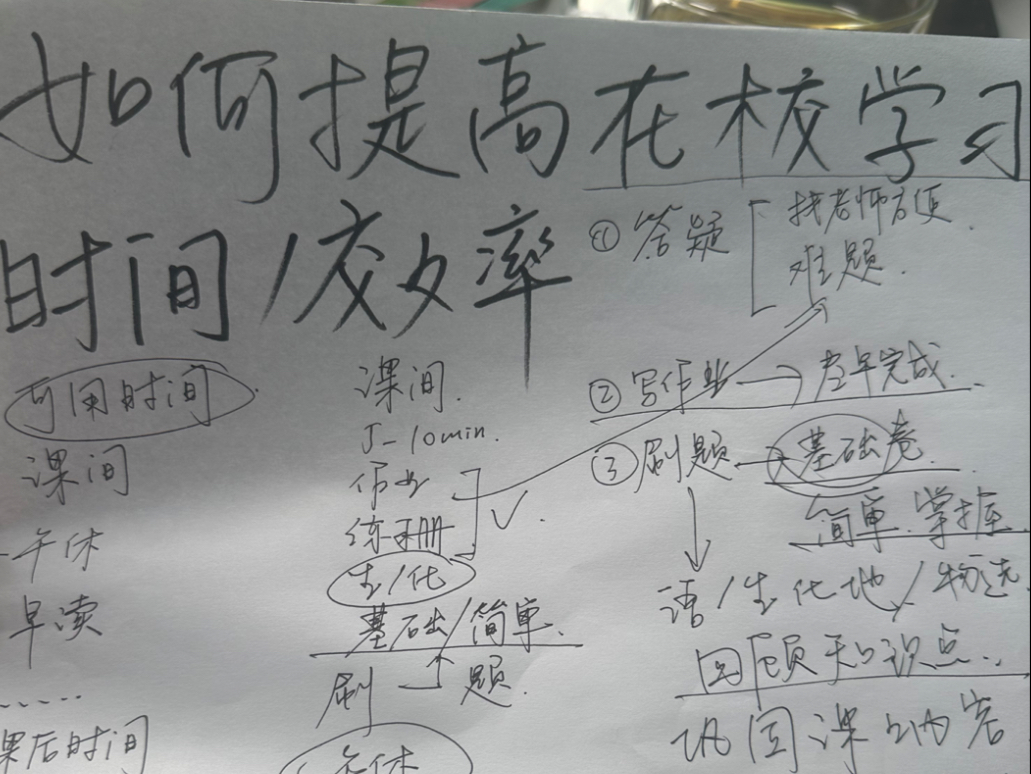 如何提高在校学习
时间/效率
可用时间
课间
午休
早读
......
课后时间
课间.
5-10min.
作业
练习册
生/化
基础/简单.
刷题.
午休
① 答疑
找老师方便.
难题.
② 写作业→尽早完成.
③ 刷题→基础卷
简单.掌握
语/生化地/物选
回顾知识点.
巩固课内容